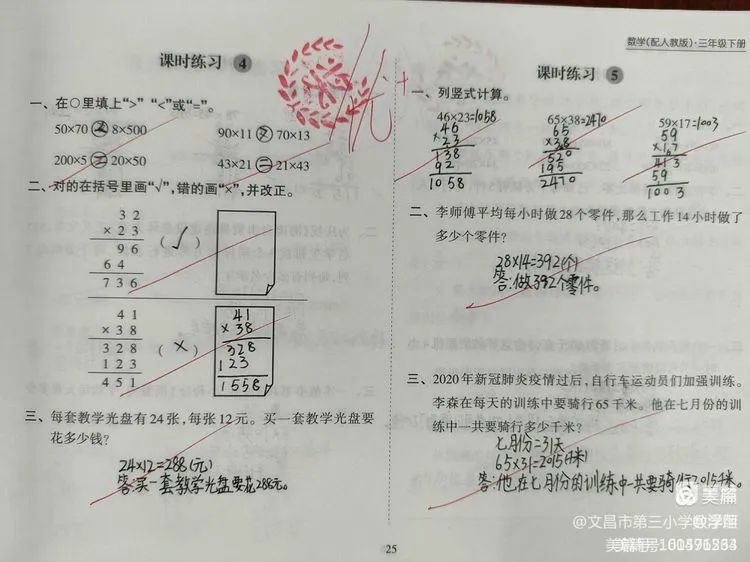 数学(配人教版)·三年级下册
课时练习 4
一、在○里填上“>”“<”或“=”。
50×70 8×500
90×11 70×13
200×5 = 20×50
43×21 = 21×43
二、对的在括号里画“√”,错的画“×”,并改正。
3 2
× 2 3
9 6
6 4
7 3 6
(√)
4 1
× 3 8
3 2 8
1 2 3
4 5 1
(×)
41
× 38
328
123
1558
三、每套教学光盘有24张,每张12元。买一套教学光盘要
花多少钱?
24×12=288(元)
答:买一套教学光盘要花288元。
课时练习 5
一、列竖式计算。
46×23=1058
46
×23
138
92
1058
65×38=2470
65
×38
520
195
2470
59×17=1003
59
×17
413
59
1003
二、李师傅平均每小时做28个零件,那么工作14小时做了
多少个零件?
28×14=392(个)
答:做392个零件。
三、2020年新冠肺炎疫情过后,自行车运动员们加强训练。
李森在每天的训练中要骑行65千米。他在七月份的训
练中一共要骑行多少千米?
七月份=31天
65×31=2015(千米)
答:他在七月份的训练中一共要骑行2015千米。
美篇
@文昌市第三小学
美篇号:
25